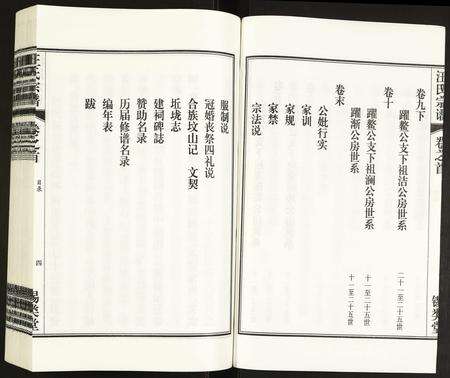 汪氏宗谱 卷之首
卷九下
躍鰲公支下祖洁公房世系 二十一至二十五世
卷十
躍鰲公支下祖澜公房世系 十一至二十五世
躍渐公房世系 十一至二十五世
卷末
公妣行实
家训
家规
家禁
宗法说
服制说
冠婚丧祭四礼说
合族坟山记 文契
坵垅志
建祠碑誌
赞助名录
历届修谱名录
编年表
跋
目录
四